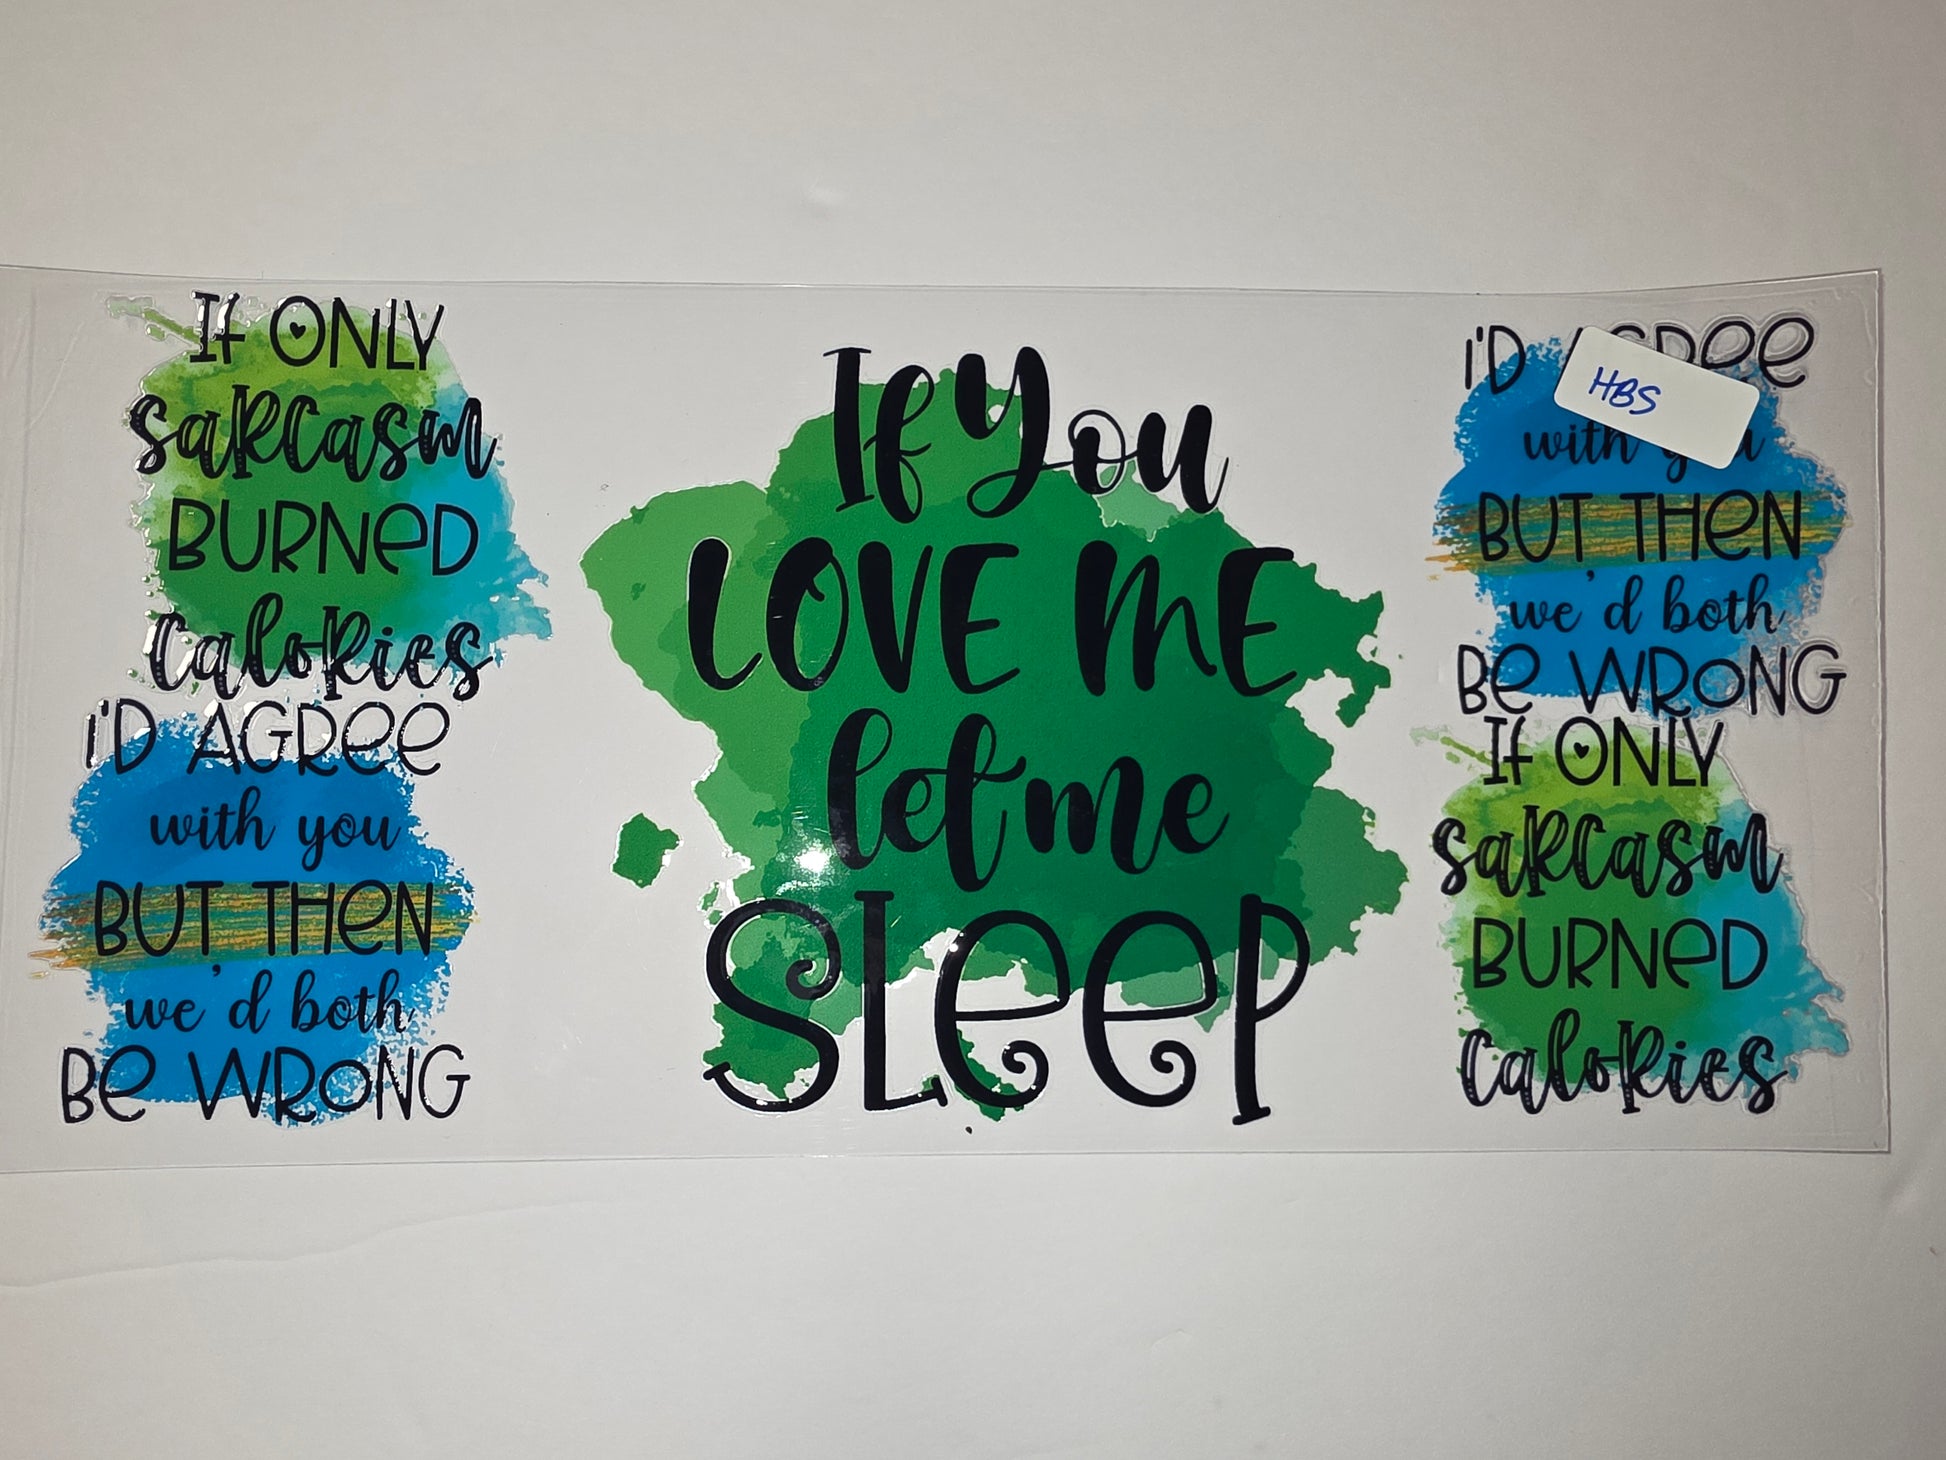 If ONLY
sarcasm
BURNeD
calories
I'D AGRee
with you
BUT THeN
we'd both
Be WRONG
If You
LOVE ME
let me
SLeeP
I'D
HBS
with
BUT THeN
we'd both
Be WRONG
If ONLY
sarcasm
BURNeD
calories